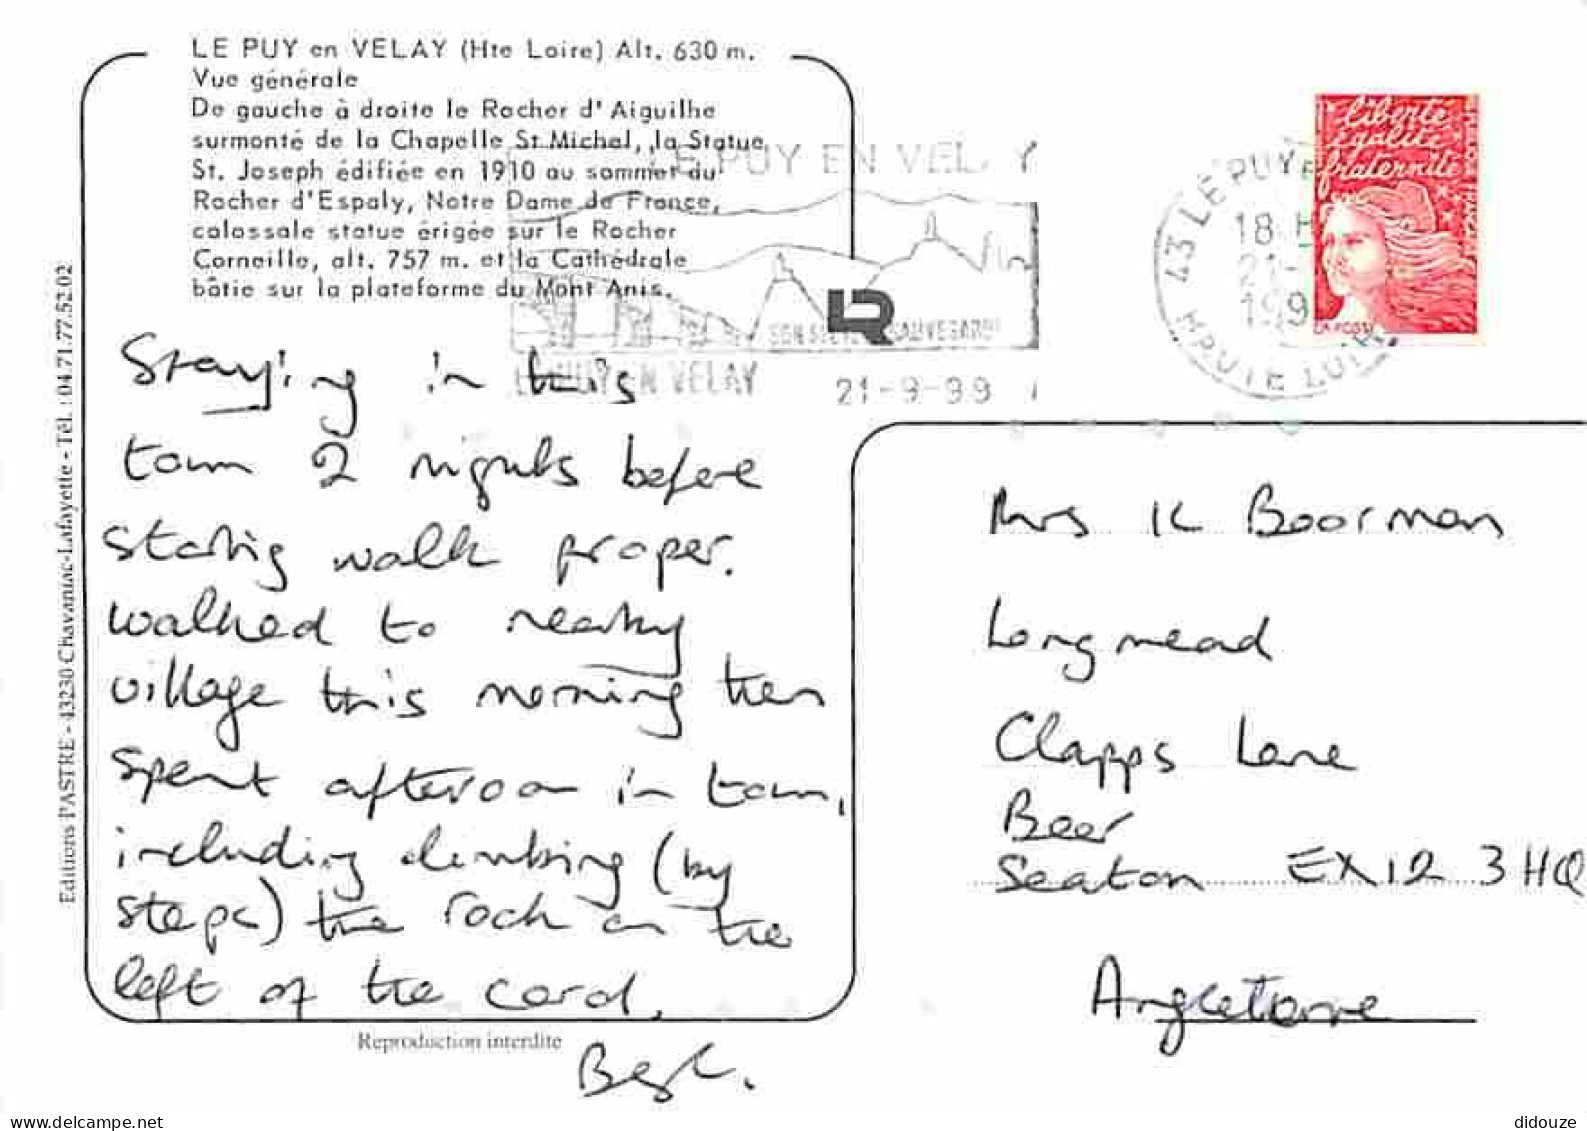 LE PUY en VELAY (Hte Loire) Alt. 630 m.
Vue générale
De gauche à droite le Rocher d'Aiguilhe
surmonté de la Chapelle St Michel, la Statue
St. Joseph édifiée en 1910 au sommet du
Rocher d'Espaly, Notre Dame de France,
colossale statue érigée sur le Rocher
Corneille, alt. 757 m. et la Cathédrale
bâtie sur la plateforme du Mont Anis.
LE PUY EN VELAY
SAUVEGARDE
LE PUY EN VELAY
21-9-99
43 LE PUY
18 H
21-
199
HAUTE LOIRE
liberté
égalité
fraternité
LA POSTE
Editions P'ASTRE - 43230 Chavaniac-Lafayette - Tél. : 04.71.77.52.02
Staying in this
town 2 nights before
starting walk proper.
Walked to nearby
village this morning then
spent afternoon in town,
including climbing (by
steps) the rock on the
left of the card.
Reproduction interdite
Mrs K Boorman
Longmead
Clapps Lane
Beer
Seaton EX12 3HQ
Angleterre
didouze